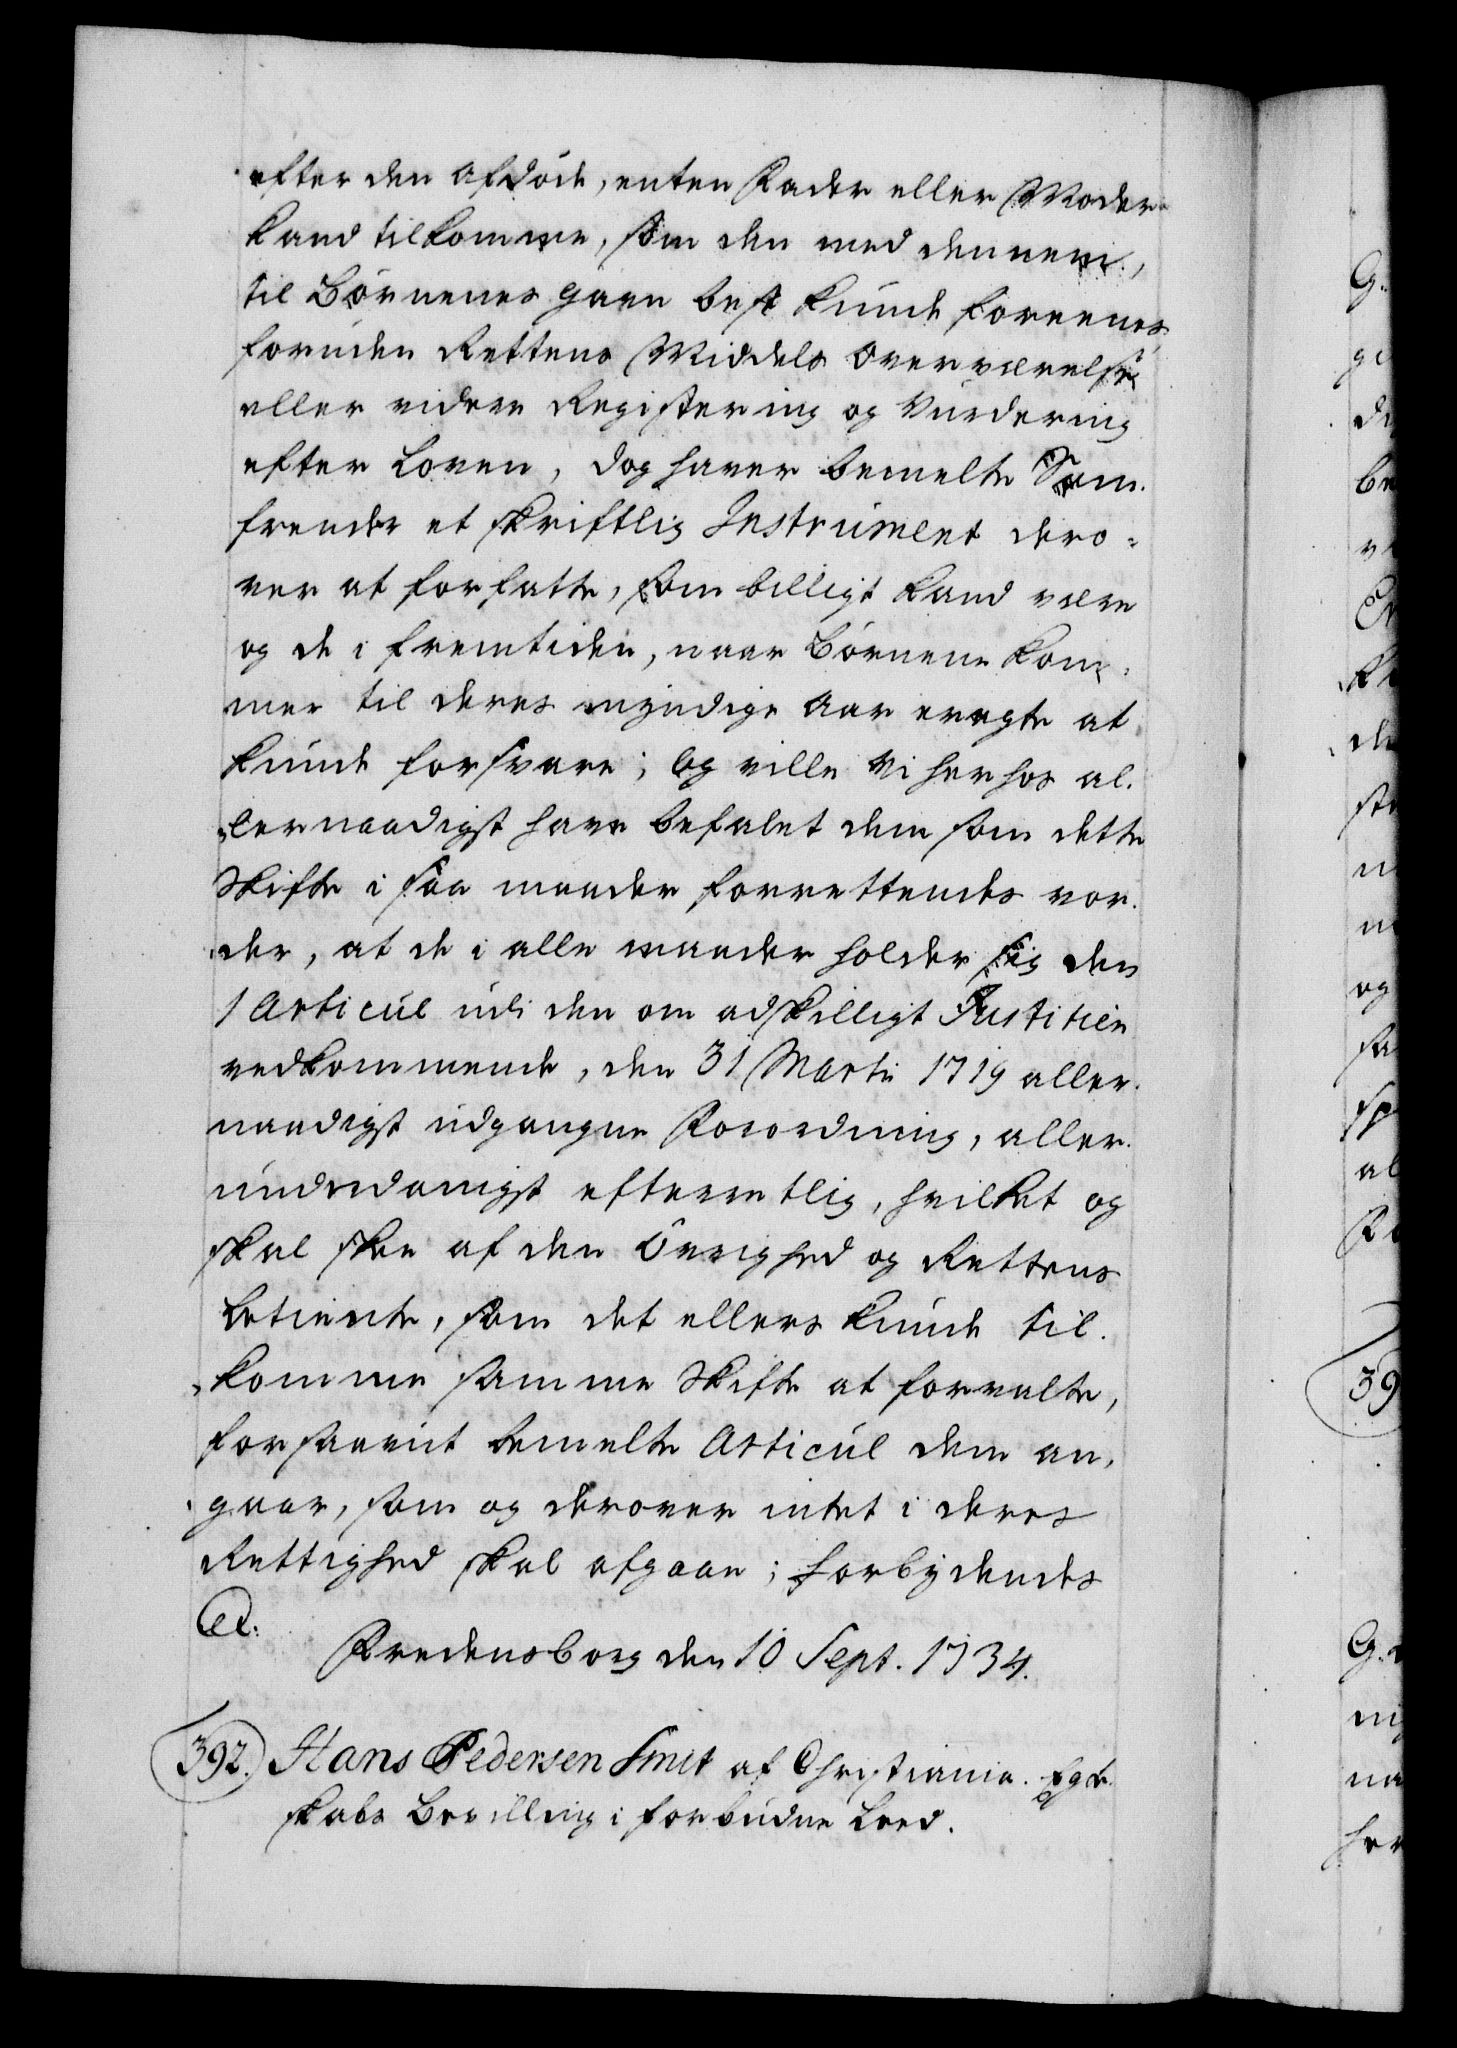 efter den afdöde, enten Fader eller Moder
kand tilkomme, som den med dennem,
til Börnenes gavn best kunde foreenes,
foruden Rettens Middels overværelse
eller videre Registering og Vurdering
efter Loven, dog haver bemelte Sam-
frender et skriftlig Instrument dero-
ver at forfatte, som billigt kand være
og de i fremtiden, naar Börnene kom-
mer til deres myndige Aar eragte at
kunde forsvare; og ville Vi herhos al-
lernaadigst have befalet dem som dette
Skifte i saa maader forrettendes vor-
der, at de i alle maader holder sig den
1 Articul udi den om adskilligt Justitien
vedkommende, den 31 Martii 1719 aller-
naadigst udgangne Forordning, aller-
underdanigst efterretlig, hvilket og
skal skee af den Övrighed og Rettens
betiente, som det ellers kunde til-
komme samme Skifte at forvalte,
forsaavit bemelte Articul dem an-
gaar, som og derover intet i deres
Rettighed skal afgaae; Forbydendes
Etc:
Fredensborg den 10 Sept. 1734.
392. Hans Pedersen Smit af Christiania. Egte-
skabs Bevilling i forbudne Leed.
G.
ge
be
og
sp
al
39
G.
na
her